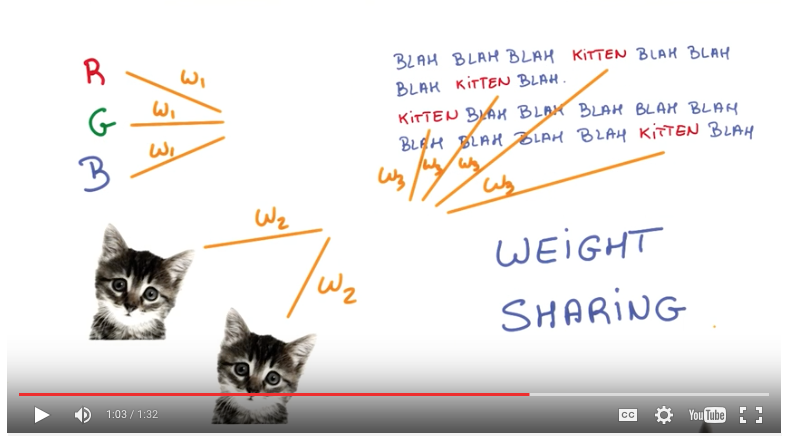 R
W1
G
W1
B
W1
BLAH BLAH BLAH KITTEN BLAH BLAH
BLAH KITTEN BLAH.
KITTEN BLAH BLAH BLAH BLAH BLAH
BLAH BLAH BLAH BLAH KITTEN BLAH
W3 W3 W3 W3
W2
W2
WEIGHT
SHARING
1:03 / 1:32
CC
YouTube